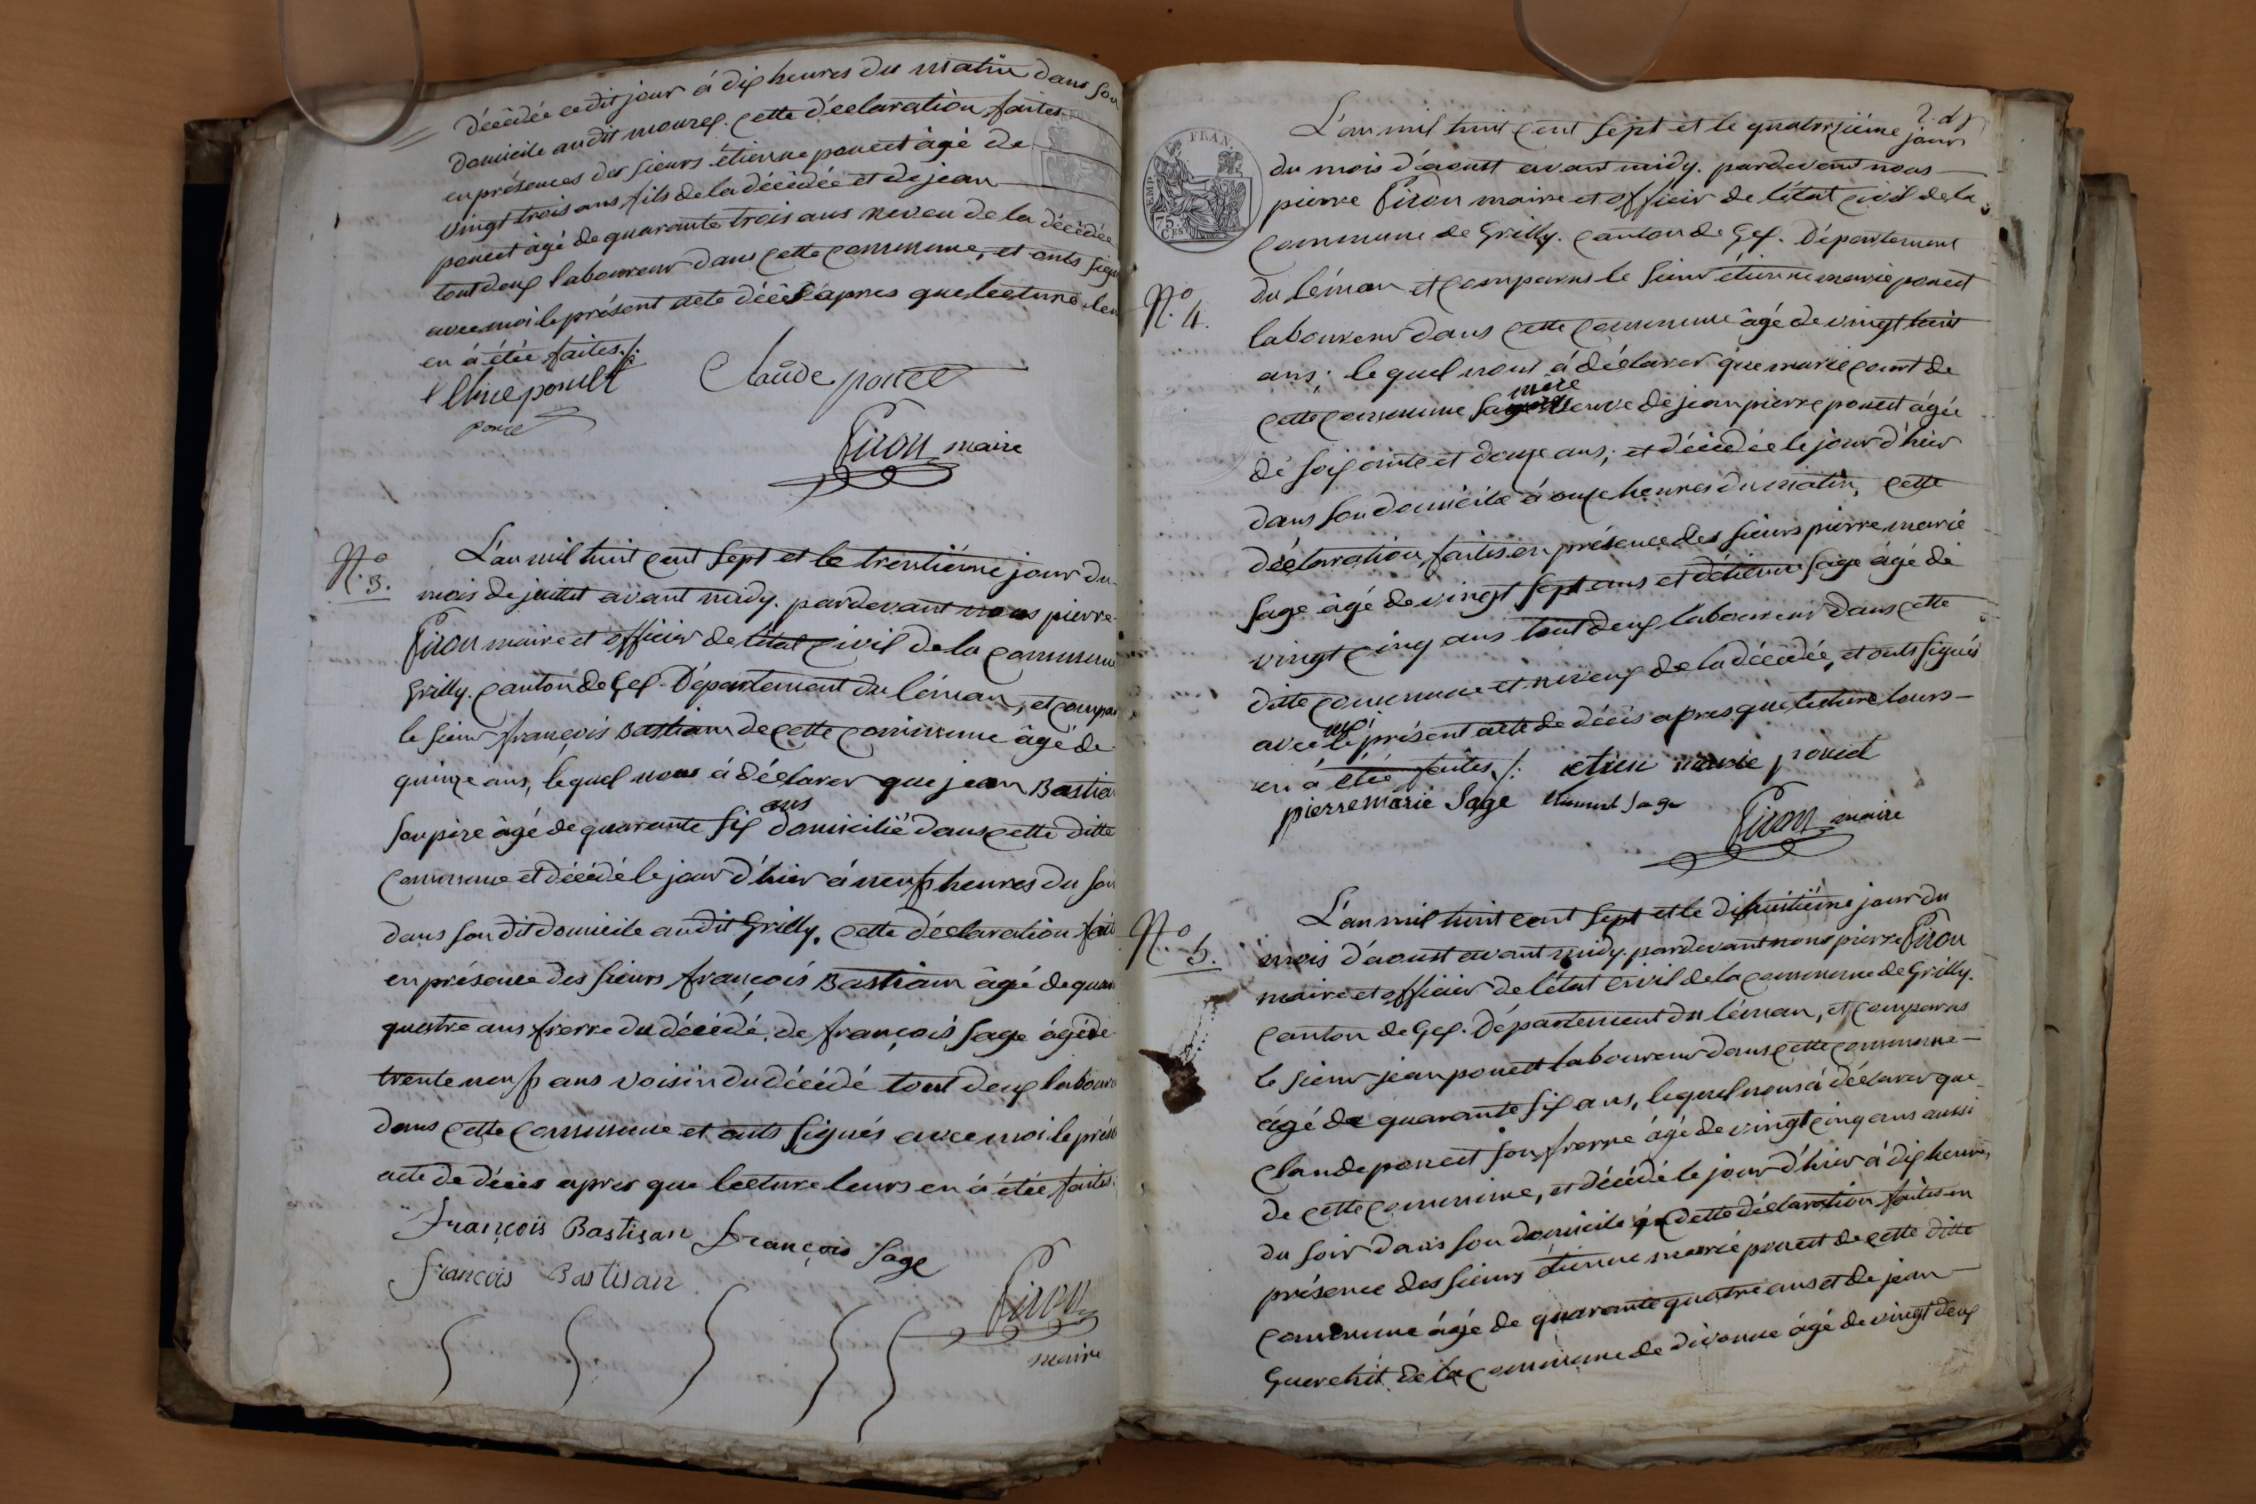 décédée ce dit jour á dix heures du matin dans son
domicile audit mourex. cette déclaration faites
en présences des sieurs étienne ponect âgé de
vingt trois ans fils de la décédée et de jean
ponect âgé de quarante trois ans neveu de la décédée
tout deux laboureur dans cette commune, et onts signé
avec moi le présent acte décés apres que lecture leu
en á étée faites./.
ponect
Claude ponect
Piron maire
N.º 3.
L'an mil huit cent sept et le trentiéme jour du
mois de juillet avant midy. pardevant nous pierre
Piron maire et officier de létat civil de la commune
Grilly. canton de Gex. Département du léman, et compar
le sieur françois Bastian de cette commune âgé de
quinze ans, lequel nous á déclarer que jean Bastian
son pére âgé de quarante six ans domicilié dans cette ditte
commune et décédé le jour d'hier á neuf heures du soir
dans son dit domicile au dit Grilly. cette déclaration fait
en présence des sieurs françois Bastian âgé de quar
quatre ans frerre du décédé, de françois Sage âgé de
trente neuf ans voisin du décédé tout deux laboure
dans cette commune et onts signés avec moi le prése
acte de décés apres que lecture leurs en á étée faites.
François Bastian François Sage
François Bastian
Piron
maire
L'an mil huit cent sept et le quatorziéme jour
du mois d'aoust avant midy. pardevant nous
pierre Piron maire et officier de l'état civil de la
commune de Grilly. canton de Gex. Département
du léman et comparus le sieur étienne marie ponect
N.º 4.
laboureur dans cette commune âgé de vingt huit
ans; lequel nous á déclarer que marie de
cette commune sa mére veuve de jean pierre ponect âgée
de soixante et douze ans; et décédée le jour d'hier
dans son domicile á onze heures du matin, cette
déclaration faites en présence des sieurs pierre marie
Sage âgé de vingt sept ans et d'étienne Sage âgé de
vingt cinq ans tout deux laboureur dans cette
ditte commune et neveux de la décédée, et onts signés
avec moi le présent acte de décés apres que lecture leurs
en á étée faites./. etiene marie ponect
pierre marie Sage Sage
Piron maire
N.º 5.
L'an mil huit cent sept et le dixhuitiéme jour du
mois d'aoust avant midy. pardevant nous pierre Piron
maire et officier de l'état civil de la commune de Grilly.
canton de Gex. Département du léman, et comparus
le sieur jean ponect laboureur dans cette commune
âgé de quarante six ans, lequel nous á déclarer que
claude ponect son frerre âgé de vingt cinq ans aussi
de cette commune, et décédé le jour d'hier á dix heures
du soir dans son domicile cette déclaration faites en
présence des sieurs étienne marie ponect de cette ditte
commune âgé de quarante quatre ans et de jean
Guerchit de la commune de divonne âgé de vingt deux